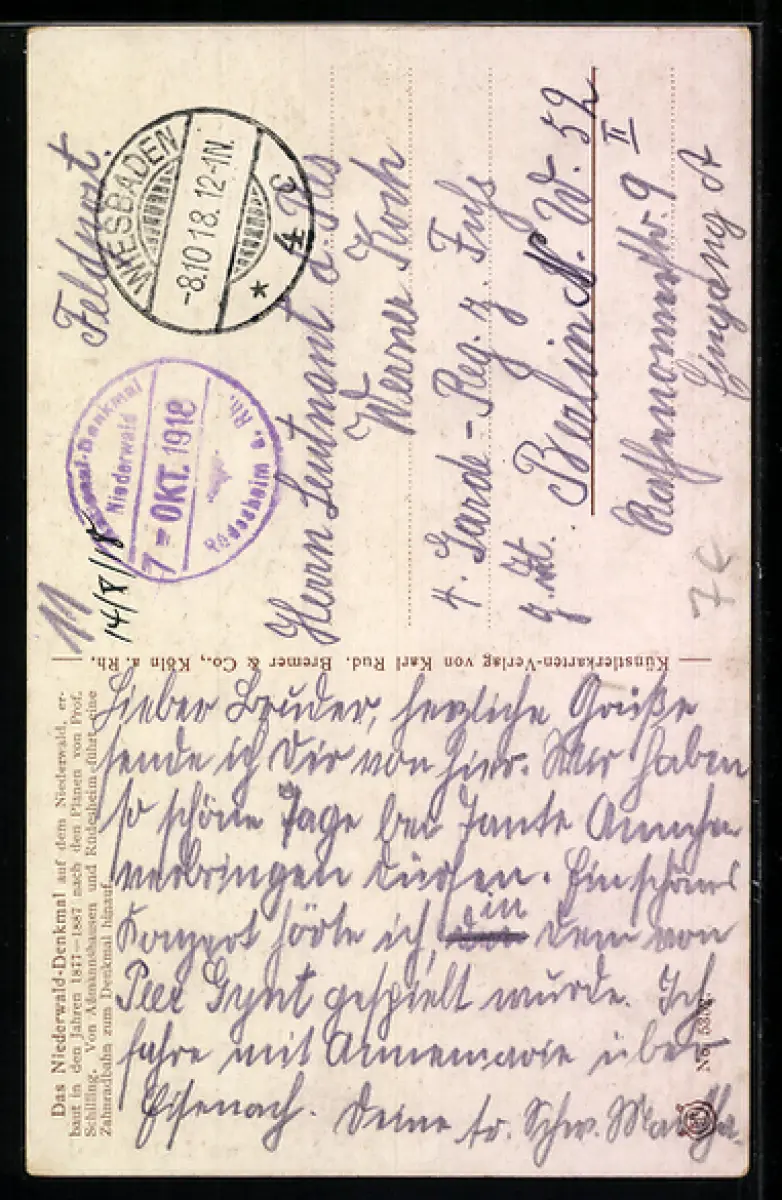 Das Niederwald-Denkmal auf dem Niederwald, er-
baut in den Jahren 1877—1887 nach den Plänen von Prof.
Schilling. Von Aßmannshausen und Rüdesheim führt eine
Zahnradbahn zum Denkmal hinauf.
11
14/8/18
Feldpost.
WIESBADEN
-8.10 18. 12-1N.
* 4 c
National-Denkmal
Niederwald
7 - OKT. 1918
Rüdesheim a. Rh.
Herrn Leutnant d. Res
Werner Koch
4. Garde-Reg. z. Fuß
z. Zt. Berlin N. W. 52
Rathenowerstr. 9 II
Eingang A
7 €
Künstlerkarten-Verlag von Karl Rud. Bremer & Co., Köln a. Rh.
Lieber Bruder, herzliche Grüße
sende ich Dir von hier. Wir haben
so schöne Tage bei Tante
verbringen dürfen. Ein schönes
Konzert hörte ich, in dem von
Peer Gynt gespielt wurde. Ich
fahre mit Annemarie über
Eisenach. Deine tr. Schw. Martha.